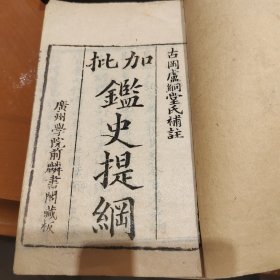 古岡盧綱堂氏補註
加批
鑑史提綱
廣州學院前麟書閣藏板